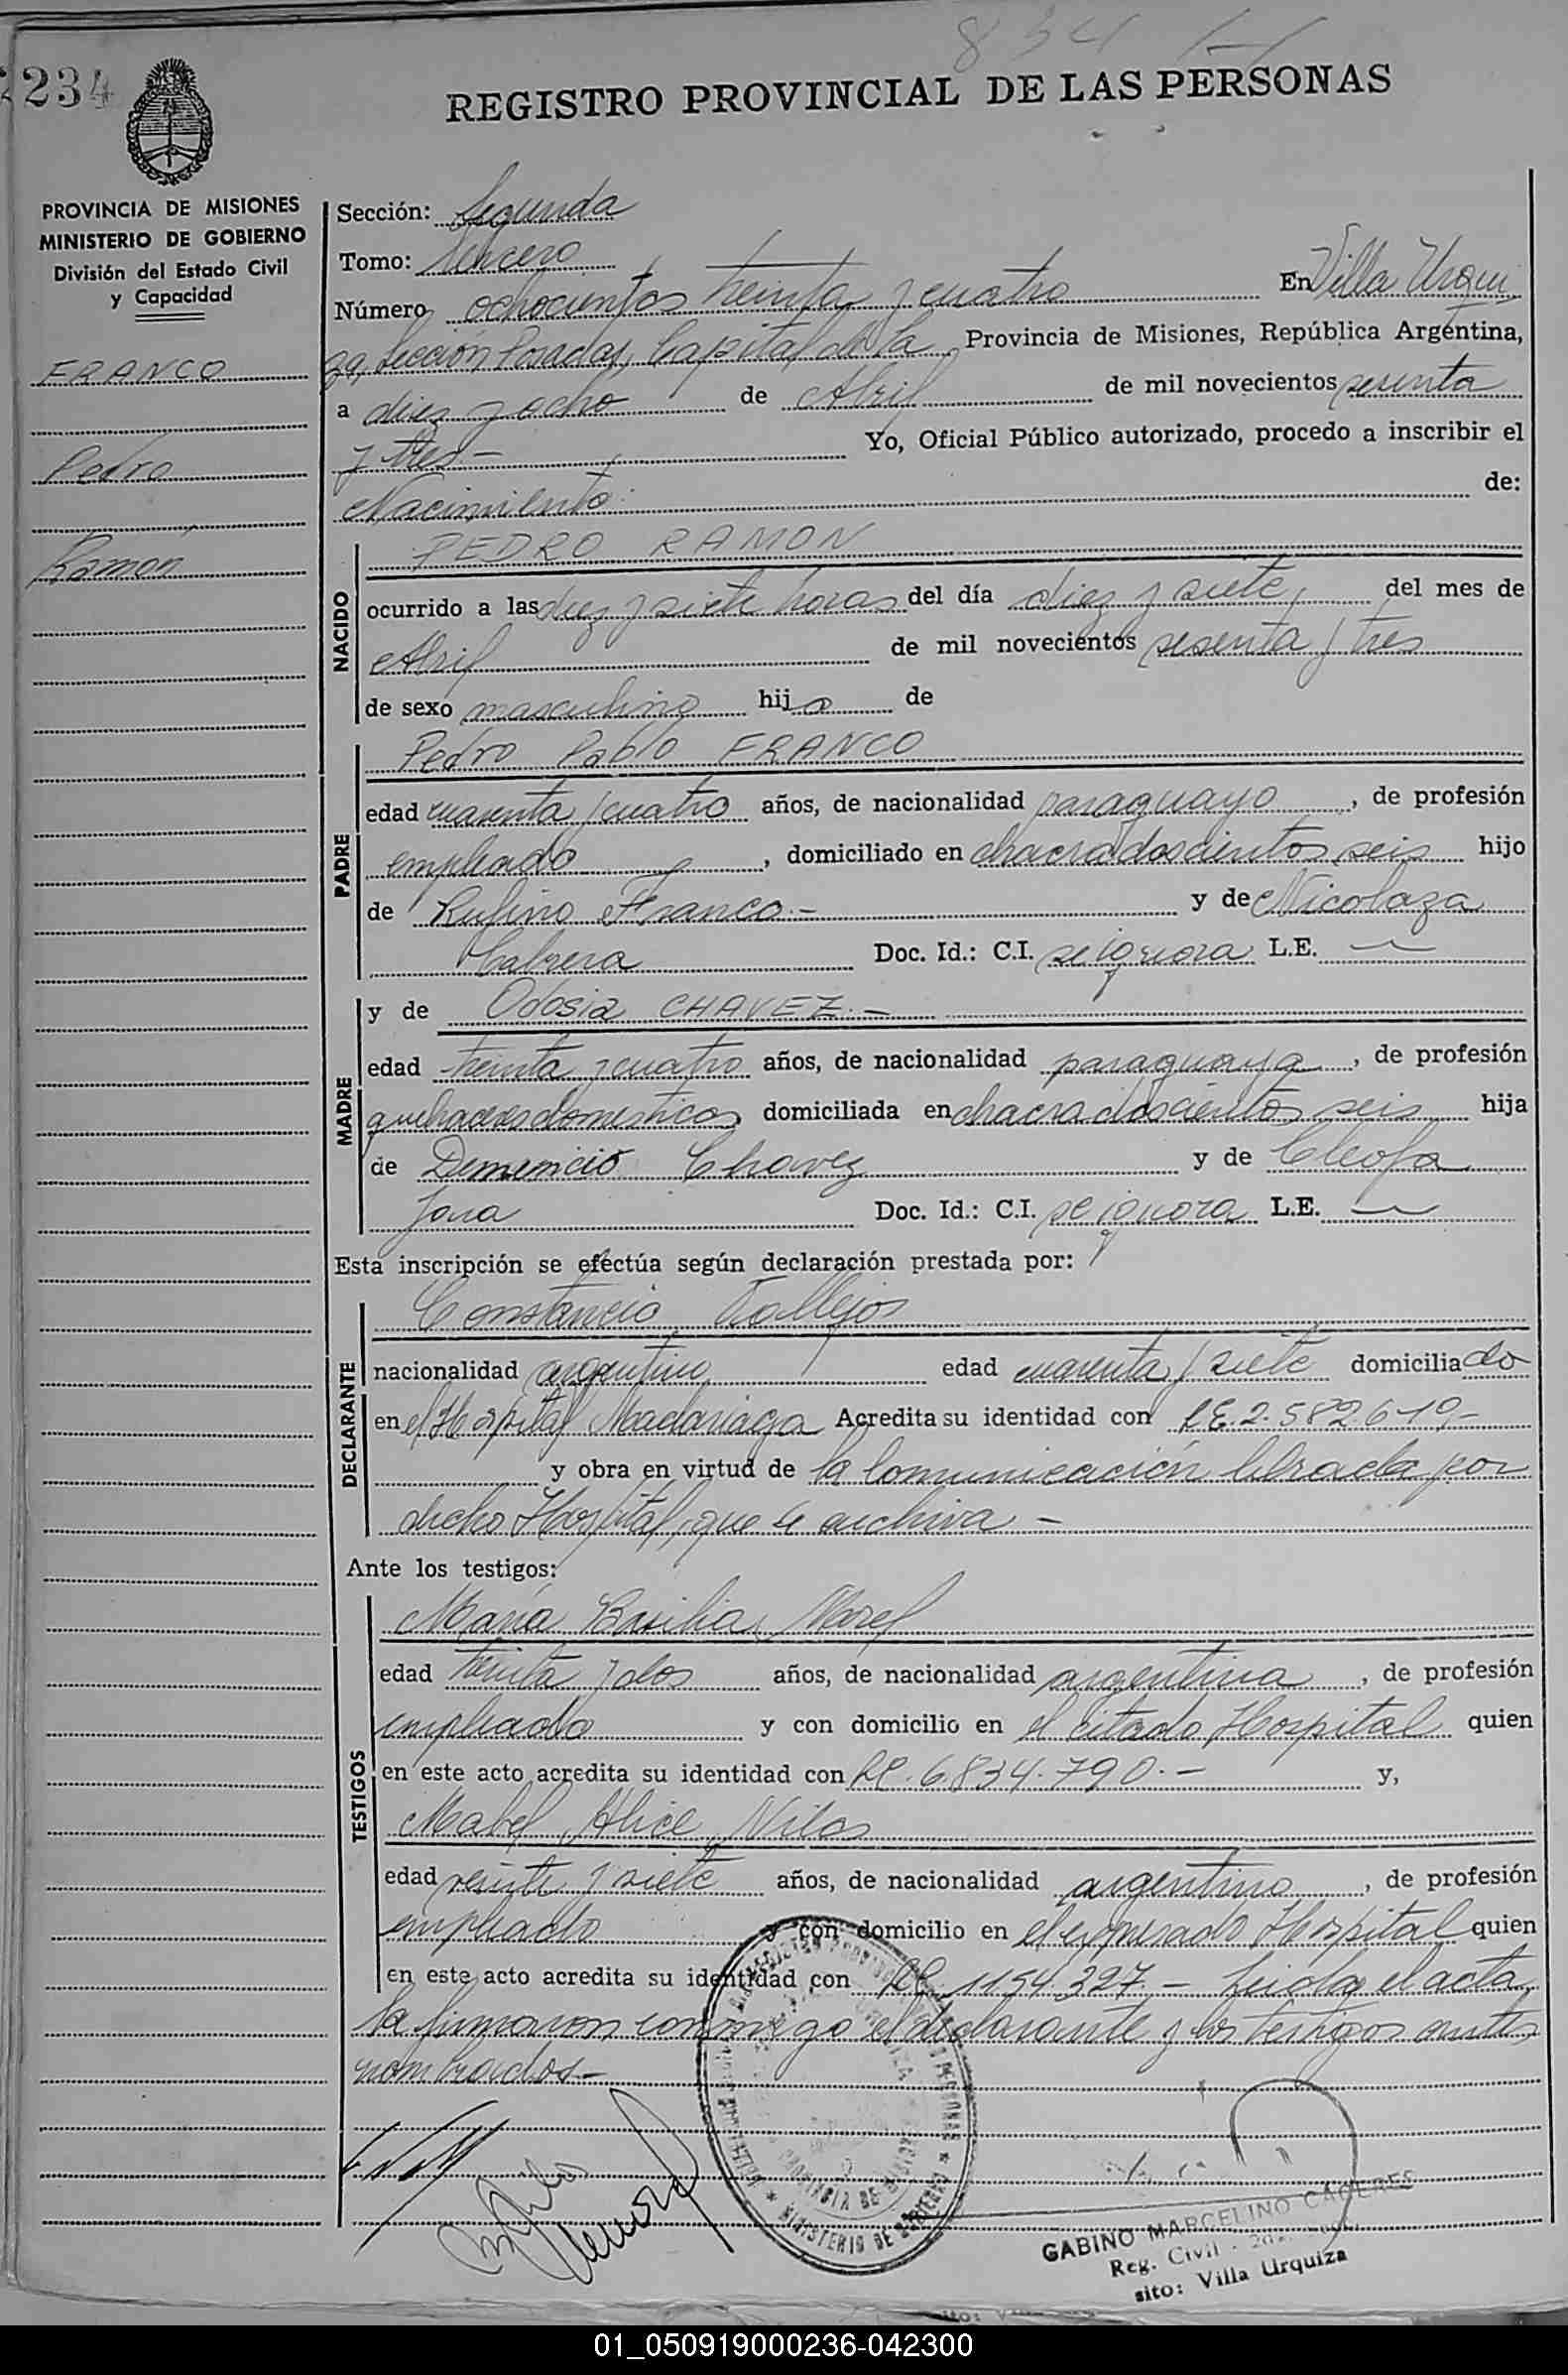 834
234
REGISTRO PROVINCIAL DE LAS PERSONAS
PROVINCIA DE MISIONES
MINISTERIO DE GOBIERNO
División del Estado Civil
y Capacidad
FRANCO
Pedro
Ramón
Sección: Segunda
Tomo: Tercero
Número ochocientos treinta y cuatro En Villa Urqui
za, Sección Posadas, Capital de la Provincia de Misiones, República Argentina,
a diez y ocho de Abril de mil novecientos sesenta
y tres- Yo, Oficial Público autorizado, procedo a inscribir el
Nacimiento de:
NACIDO
PEDRO RAMON
ocurrido a las diez y siete horas del día diez y siete, del mes de
Abril de mil novecientos sesenta y tres
de sexo masculino hijo de
PADRE
Pedro Pablo FRANCO
edad cuarenta y cuatro años, de nacionalidad paraguayo, de profesión
empleado, domiciliado en chacra doscientos seis hijo
de Rufino Franco.- y de Nicolaza
Cabrera Doc. Id.: C.I. se ignora L.E. —
MADRE
y de Odosia CHAVEZ.-
edad treinta y cuatro años, de nacionalidad paraguaya, de profesión
quehaceres domesticos domiciliada en chacra doscientos seis hija
de Demencio Chavez y de Cleofa
Jara Doc. Id.: C.I. se ignora L.E. —
Esta inscripción se efectúa según declaración prestada por:
DECLARANTE
Constancio Vallejos
nacionalidad argentino edad cuarenta y siete domiciliado
en el Hospital Madariaga Acredita su identidad con L.E. 2.582.619-
y obra en virtud de la Comunicación librada por
dicho Hospital, que se archiva -
Ante los testigos:
TESTIGOS
María Basilia
edad treinta y dos años, de nacionalidad argentina, de profesión
empleada y con domicilio en el citado Hospital quien
en este acto acredita su identidad con LC. 6.834.790.- y,
Mabel Alice
edad veinte y siete años, de nacionalidad argentina, de profesión
empleada y con domicilio en el expresado Hospital quien
en este acto acredita su identidad con LC. 1154.327.- Leida el acta,
la firmaron conmigo el declarante y los testigos antes
nombrados-
MINISTERIO DE GOBIERNO
PROVINCIA DE MISIONES
GABINO MARCELINO CACERES
Reg. Civil
sito: Villa Urquiza
01_050919000236-042300